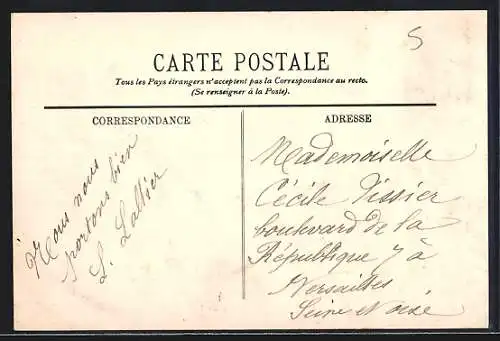 5
CARTE POSTALE
Tous les Pays étrangers n'acceptent pas la Correspondance au recto.
(Se renseigner à la Poste).
CORRESPONDANCE
Nous nous
portons bien
L. Lallier
ADRESSE
Mademoiselle
Cécile Tissier
boulevard de la
République 7 à
Versailles
Seine et Oise